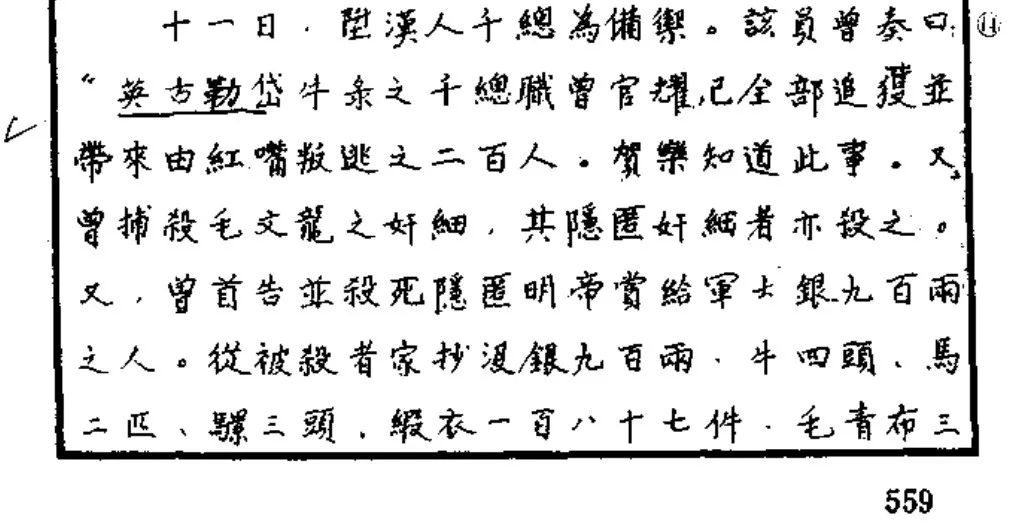 十一日，陞漢人千總為備禦。該員曾奏曰
"英古勒岱牛彔之千總職曾官耀，已全部追獲並
帶來由紅嘴叛逃之二百人。賀樂知道此事。又，
曾捕殺毛文龍之奸細，其隱匿奸細者亦殺之。
又，曾首告並殺死隱匿明帝賞給軍士銀九百兩
之人。從被殺者家抄沒銀九百兩，牛四頭、馬
二匹、騾三頭，緞衣一百八十七件，毛青布三
⑭
559